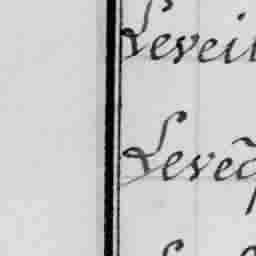 Leveil
Levēq